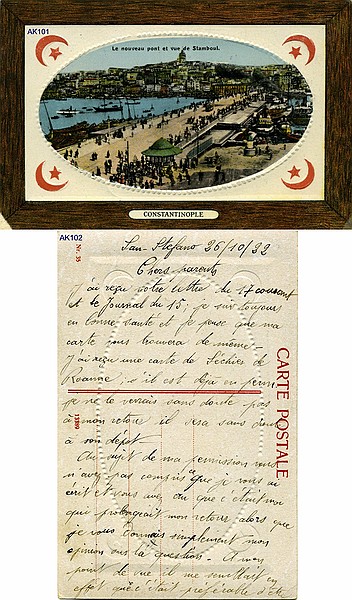 AK101
Le nouveau pont et vue de Stamboul.
CONSTANTINOPLE
AK102
Nr. 35
San-Stefano 26/10/22
Chers parents
j'ai reçu votre lettre du 17 courant
et le Journal du 15, je suis toujours
en bonne santé et je pense que ma
carte vous trouvera de même.
J'ai reçu une carte de
Roanne, s'il est déjà en perm
je ne le verrais sans doute pas
à mon retour il sera sans doute
à son dépot.
Au sujet de ma permission vous
n'avez pas compris ce que je vous ai
écrit et vous avez cru que c'était moi
qui prolongeait mon retour alors que
je vous donnais simplement mon
opinion sur la question. A mon
point de vue il me semblait en
effet que c'était préférable d'être
CARTE POSTALE